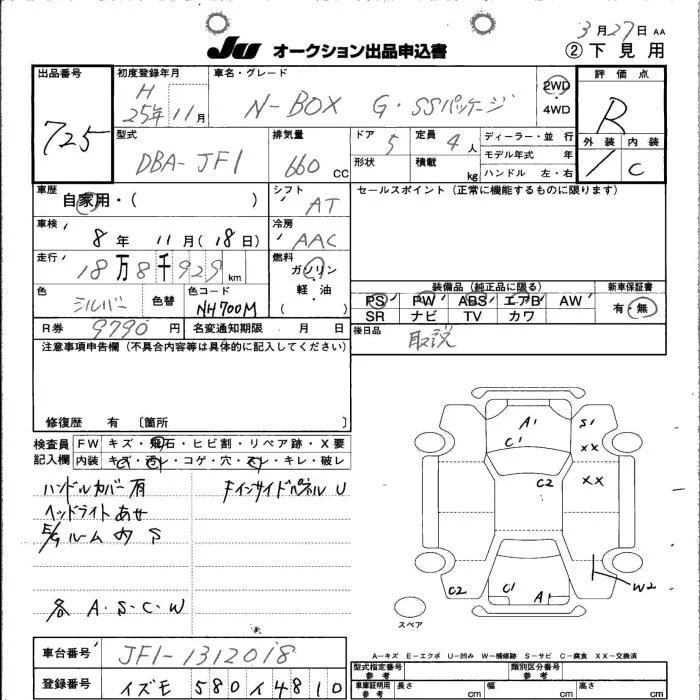 3月27日 AA
JU オークション出品申込書
②下見用
出品番号
725
初度登録年月
H
25年11月
車名・グレード
N-BOX G・SSパッケージ
2WD
・
4WD
評価点
R
外装 内装
/ C
型式
DBA-JF1
排気量
660 CC
ドア 5
形状
定員 4人
積載 kg
ディーラー・並行
モデル年式 年
ハンドル 左・右
車歴
自家用・( )
シフト
AT
セールスポイント(正常に機能するものに限ります)
車検
8年11月(18日)
冷房
AAC
走行
18万8千929km
燃料
ガソリン
・
軽・油
( )
色
シルバー
色替
色コード
NH700M
装備品(純正品に限る)
PS PW ABS エアB AW
SR ナビ TV カワ
新車保証書
有・無
R券 9790円
名変通知期限 月 日
後日品
取説
注意事項申告欄(不具合内容等は具体的に記入してください)
修復歴 有 〔箇所 〕
検査員
記入欄
FW キズ・飛石・ヒビ割・リペア跡・X要
内装 キズ・汚レ・コゲ・穴・スレ・キレ・破レ
ハンドルカバー有
ヘッドライトあせ
E/gルーム内 S
各 A.S.C.W
Fインサイドパネル U
A1
C1
S1
XX
C2
XX
C2
C1
A1
W2
スペア
A-キズ E-エクボ U-凹み W-補修跡 S-サビ C-腐食 XX-交換済
車台番号
JF1-1312018
登録番号
イズモ 580 イ 4810
型式指定番号
参考
類別区分番号
参考
車庫証明用
参考
長さ cm
幅 cm
高さ cm